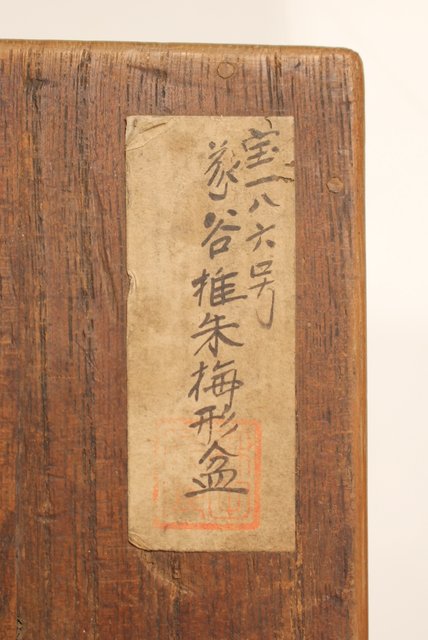 宝一八六号
谷椎朱梅形盆